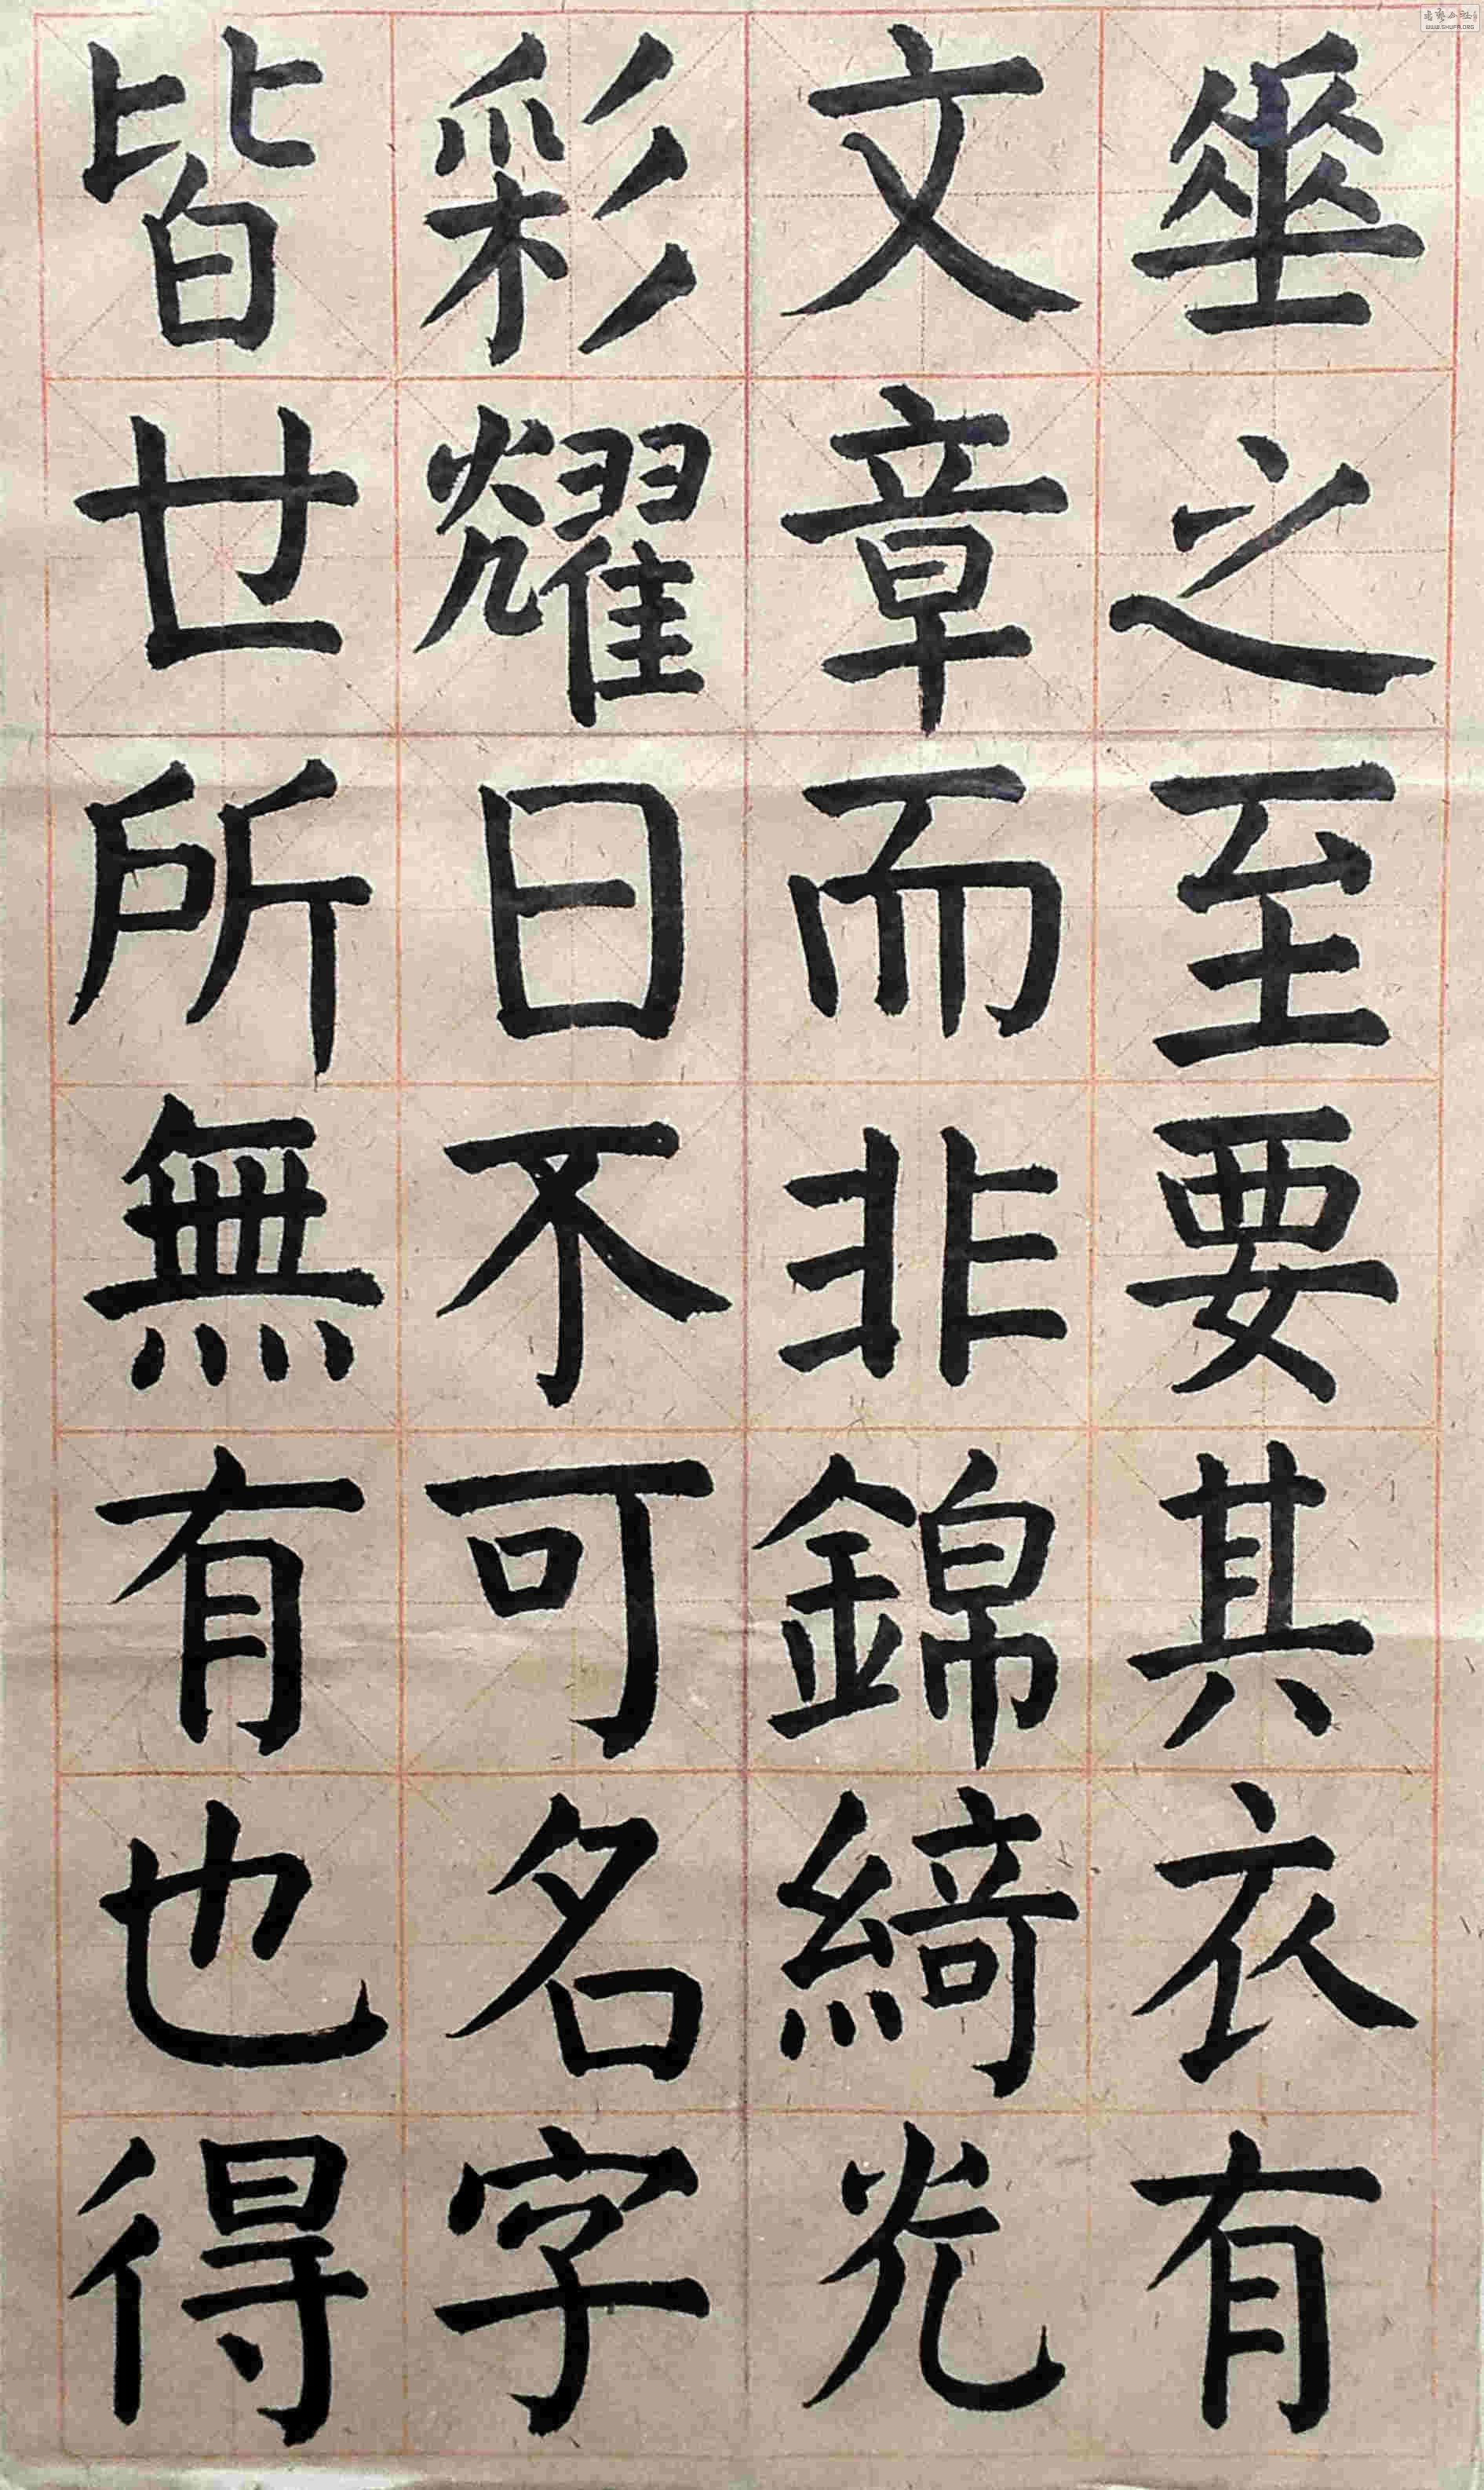 華之至要其衣有
文章而非錦綺光
彩耀日不可名字
皆世所無有也得
WWW.SHUFA.ORG